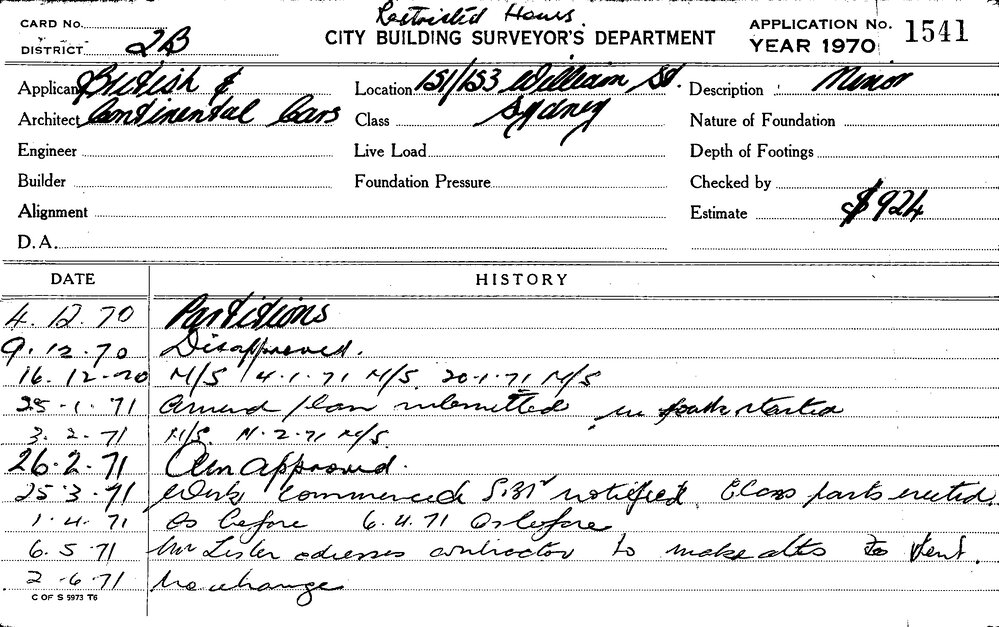 Restricted Hours.
CARD No. CITY BUILDING SURVEYOR'S DEPARTMENT APPLICATION No. 1541
DISTRICT 2B YEAR 1970
Applicant British & Location 151/153 William St. Description Minor
Architect Continental Cars Class Sydney Nature of Foundation
Engineer Live Load Depth of Footings
Builder Foundation Pressure Checked by
Alignment Estimate $924
D.A.
DATE HISTORY
4.12.70 Partitions
9.12.70 Disapproved.
16.12.70 M/S 14.1.71 M/S. 20.1.71 M/S
25.1.71 Amend plan submitted started
3.2.71 M/S. 11.2.71 M/S
26.2.71 Am approved.
25.3.71 Work commenced notified Class parts erected.
1.4.71 As before 6.4.71 As before
6.5.71 Mr Lister contractor to make alts to vent.
2.6.71 No change
C OF S 5973 T6